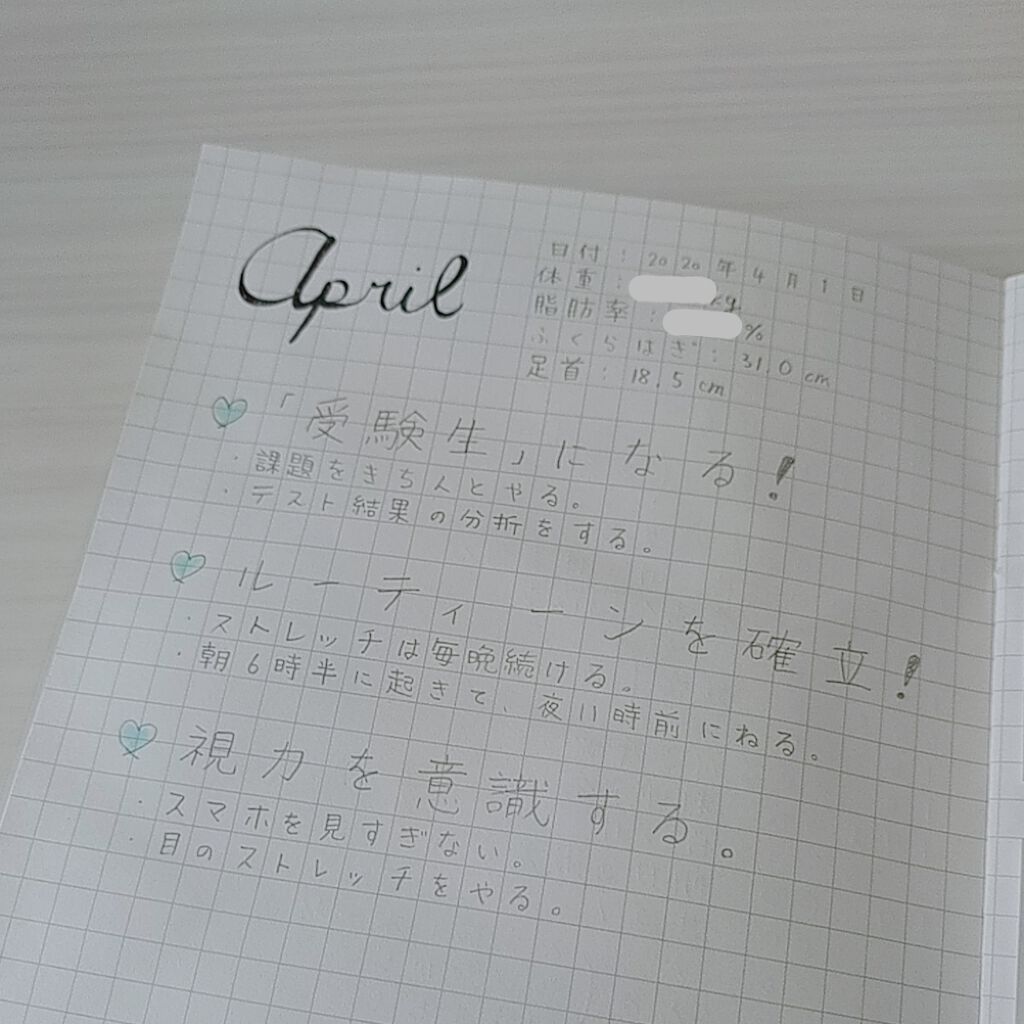 April
日付：2020年4月1日
体重：kg
脂肪率：%
ふくらはぎ：31.0cm
足首：18.5cm
「受験生」になる！
・課題をきちんとやる。
・テスト結果の分析をする。
ルーティーンを確立！
・ストレッチは毎晩続ける。
・朝6時半に起きて、夜11時前にねる。
視力を意識する。
・スマホを見すぎない。
・目のストレッチをやる。